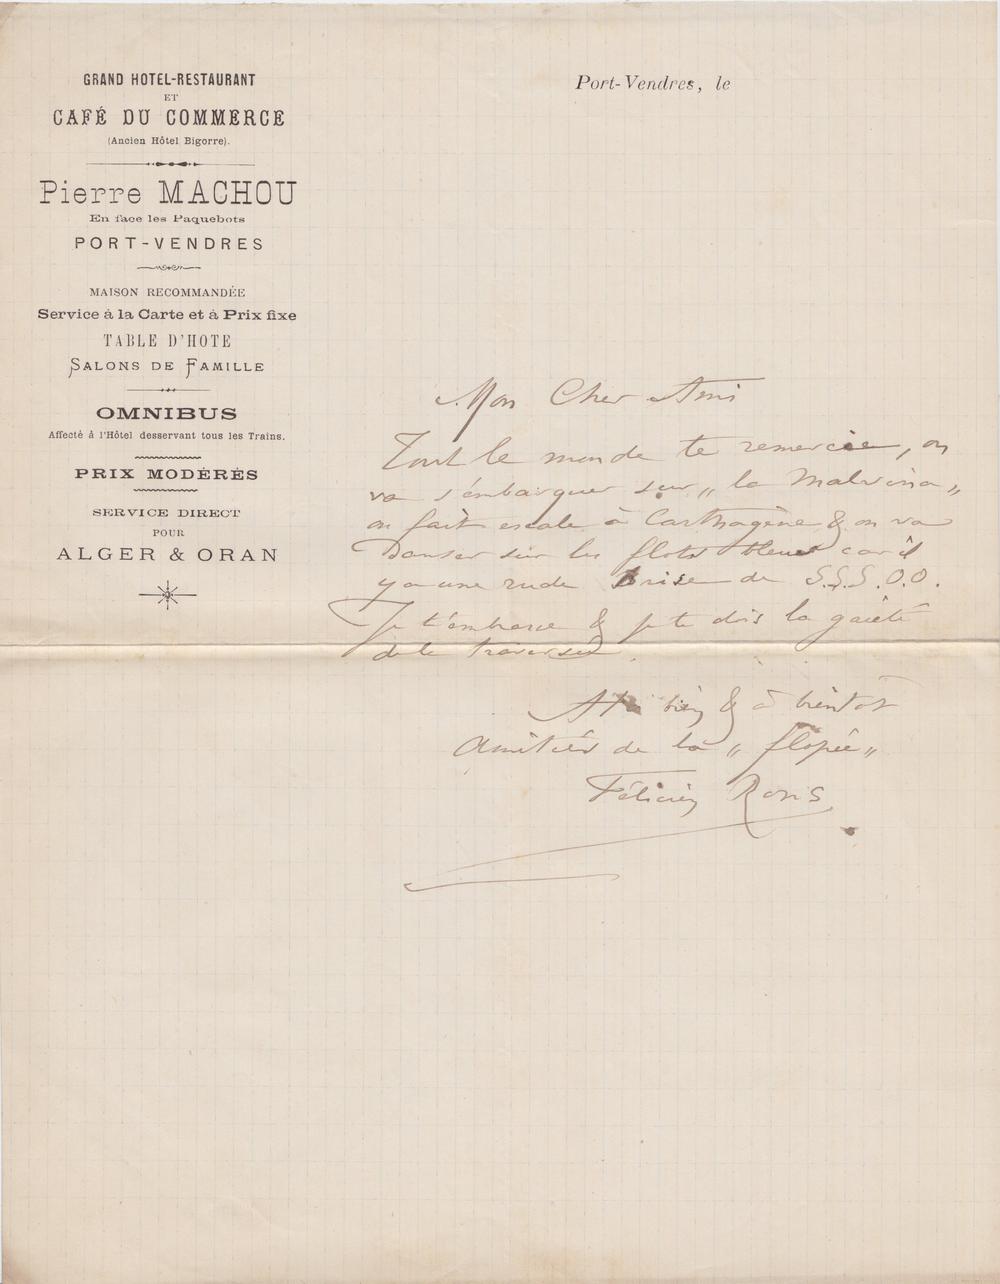 GRAND HOTEL-RESTAURANT
ET
CAFÉ DU COMMERCE
(Ancien Hôtel Bigorre).
Pierre MACHOU
En face les Paquebots
PORT-VENDRES
MAISON RECOMMANDÉE
Service à la Carte et à Prix fixe
TABLE D'HOTE
SALONS DE FAMILLE
OMNIBUS
Affecté à l'Hôtel desservant tous les Trains.
PRIX MODÉRÉS
SERVICE DIRECT
POUR
ALGER & ORAN
Port-Vendres, le
Mon Cher Ami
Tout le monde te remercie, on
va s'embarquer sur „ la Malvina „
on fait escale à Carthagène & on va
Danser sur les flots bleus car il
y a une rude Brise de S.S.S.O.O.
Je t'embrasse & je te dois la gaieté
de la traversée.
bien & à bientôt
Amitiés de la „ flopée „
Félicien Rops